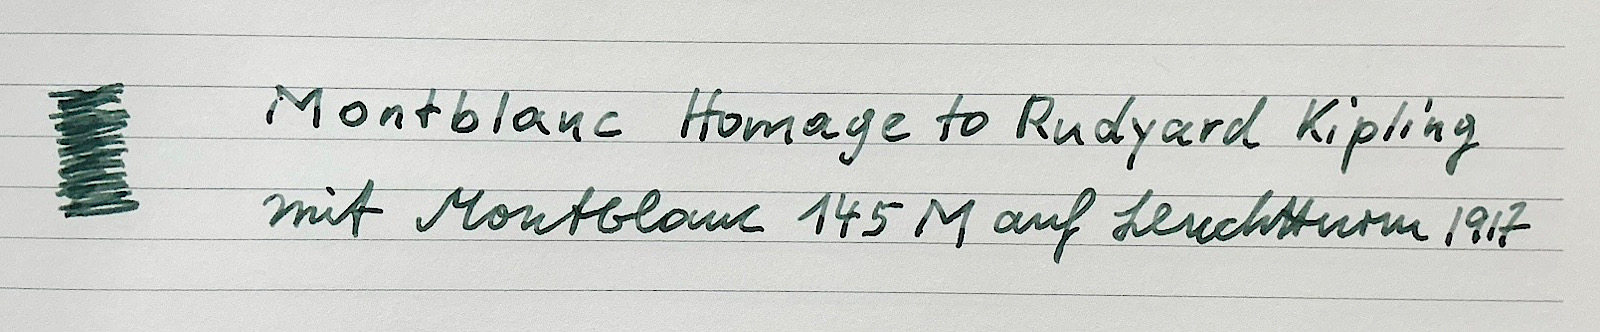 Montblanc Homage to Rudyard Kipling
mit Montblanc 145 M auf Leuchtturm 1917